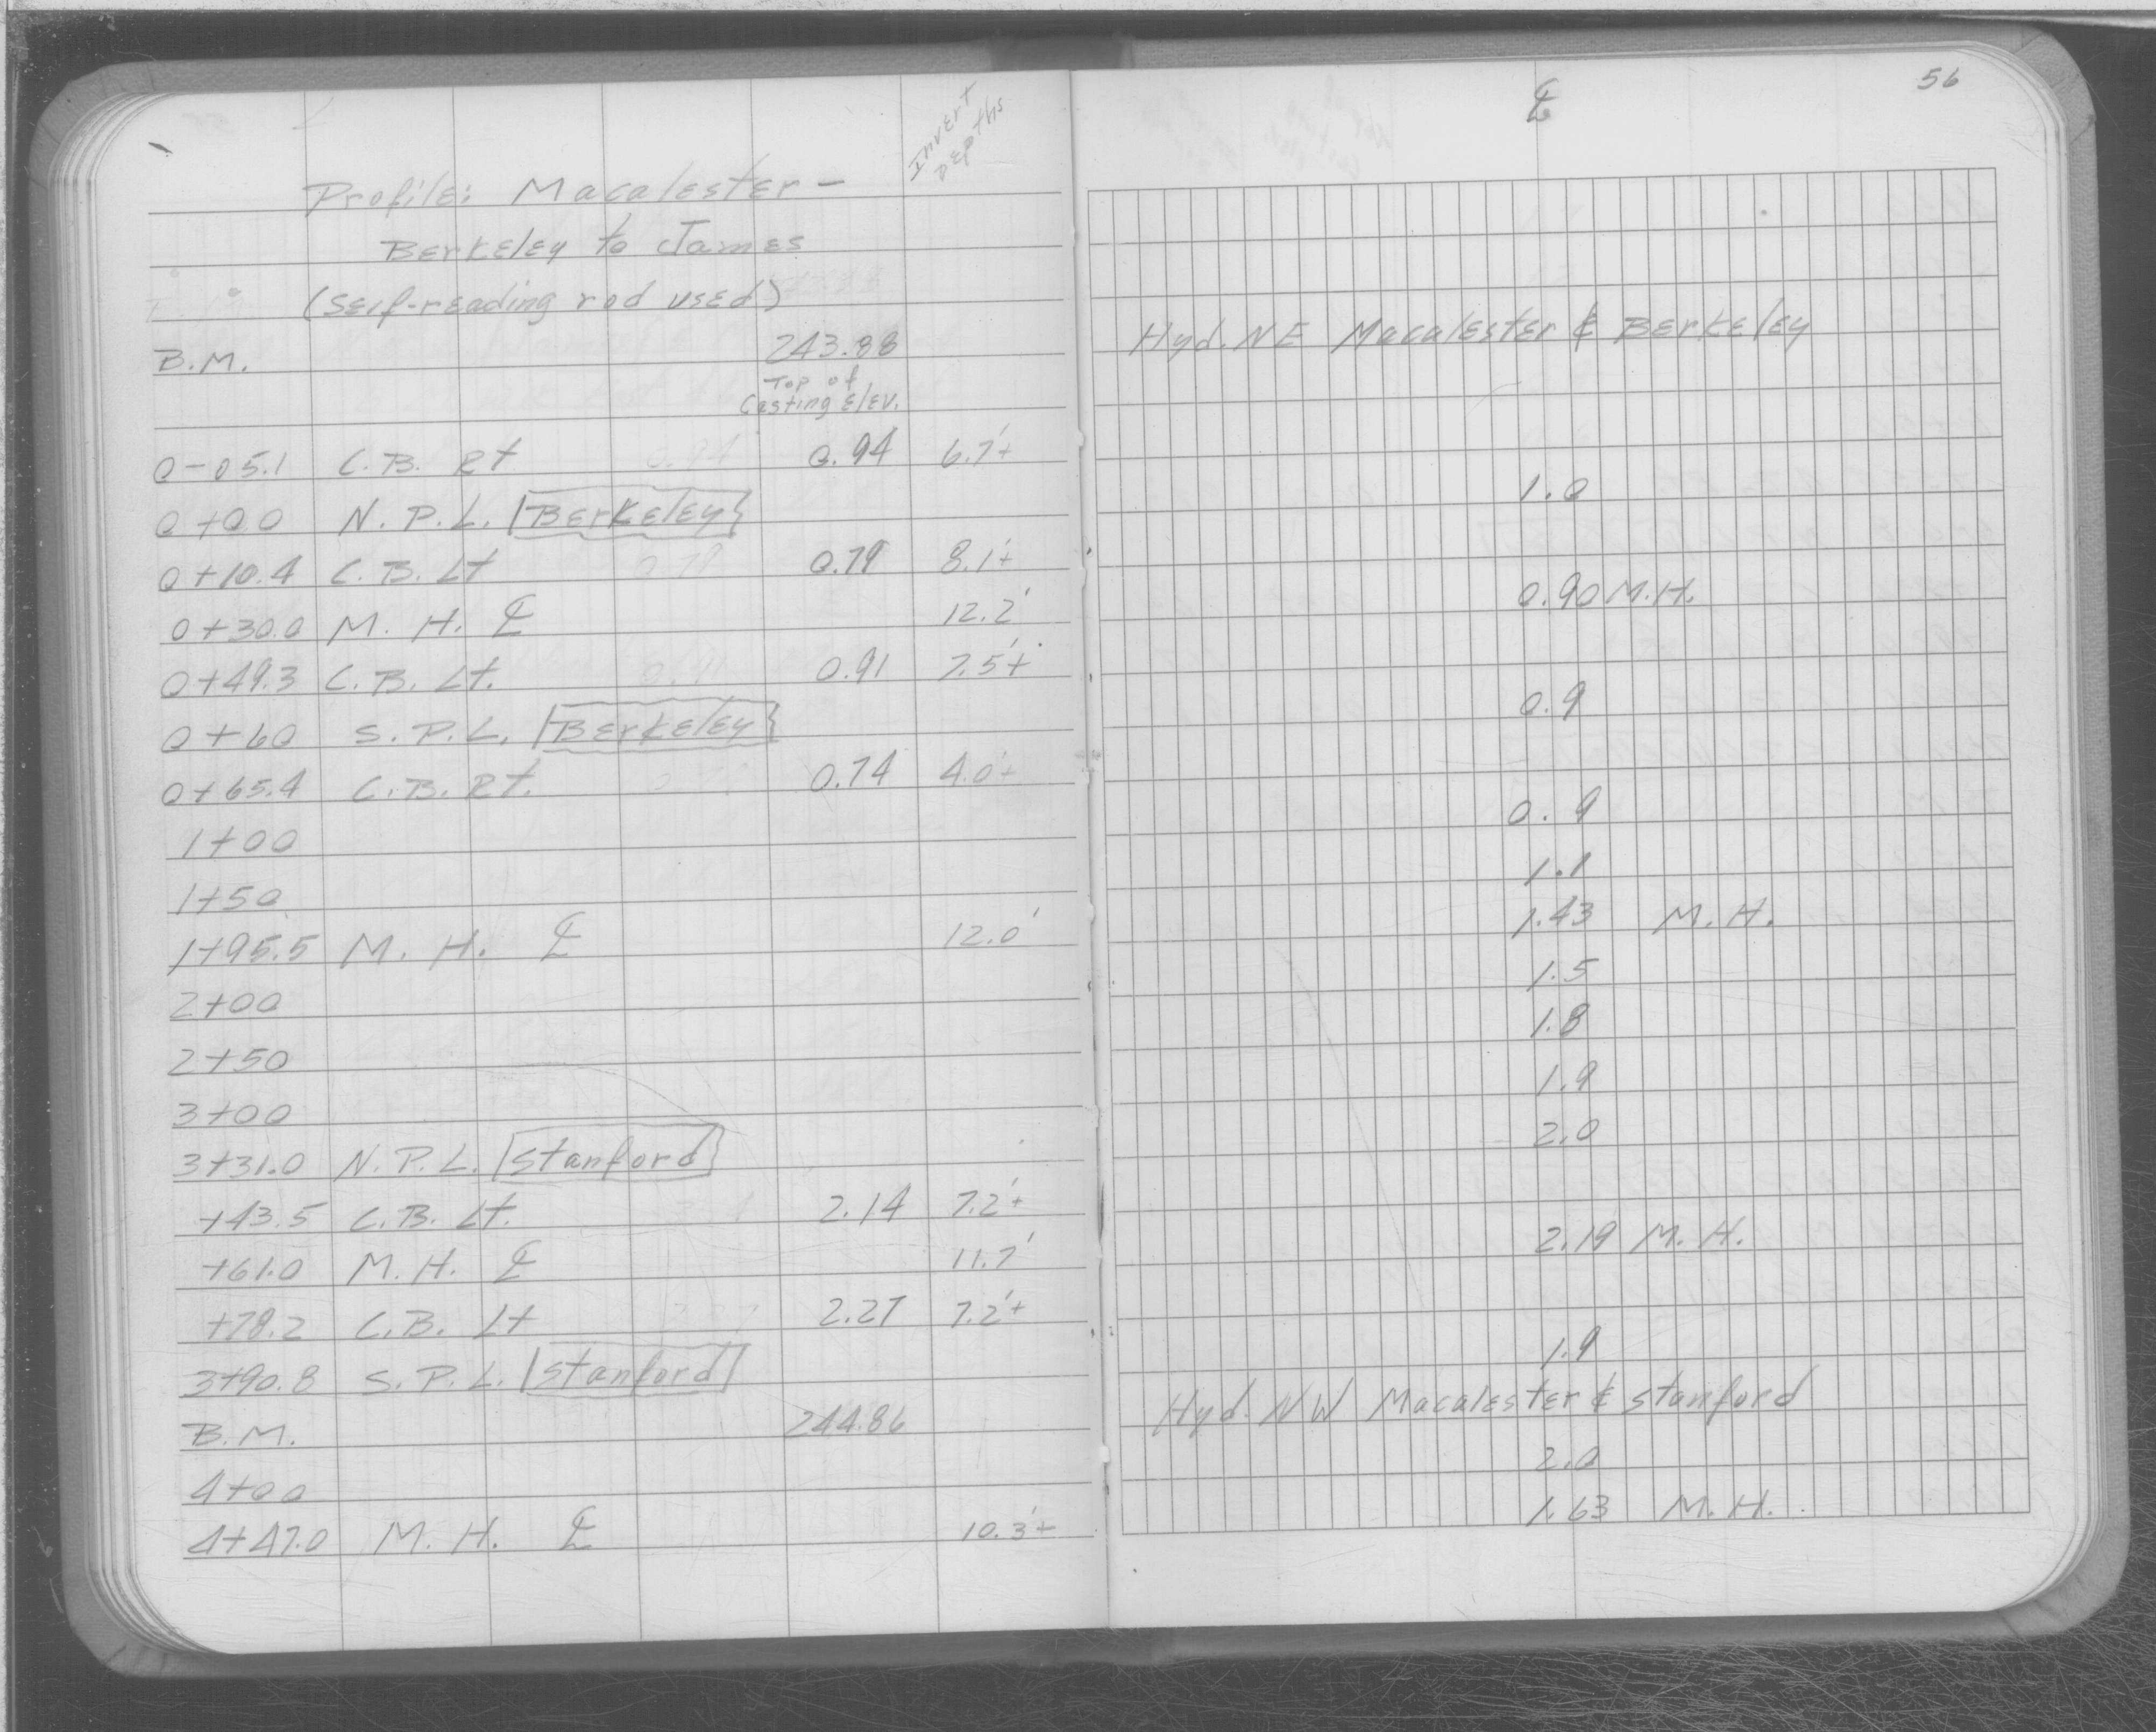 56
Invert
Depths
℄
Profile: Macalester -
Berkeley to James
(Self-reading rod used)
B.M. 243.88 Hyd. NE Macalester & Berkeley
Top of
Casting Elev.
0-05.1 C.B. Rt 0.94 0.94 6.7'+
0+00 N.P.L. Berkeley 1.0
0+10.4 C.B. Lt 0.79 0.79 8.1'+
0+30.0 M.H. ℄ 12.2' 0.90 M.H.
0+49.3 C.B. Lt. 0.91 0.91 7.5'+
0+60 S.P.L. Berkeley 0.9
0+65.4 C.B. Rt. 0.74 4.0'+
1+00 0.9
1+50 1.1
1+95.5 M.H. ℄ 12.0' 1.43 M.H.
2+00 1.5
2+50 1.8
3+00 1.9
3+31.0 N.P.L. Stanford 2.0
+43.5 C.B. Lt. 2.14 7.2'+
+61.0 M.H. ℄ 11.7' 2.19 M.H.
+78.2 C.B. Lt 2.27 7.2'+
3+90.8 S.P.L. Stanford 1.9
B.M. 244.86 Hyd. NW Macalester & Stanford
4+00 2.0
4+47.0 M.H. ℄ 10.3'+ 1.63 M.H.